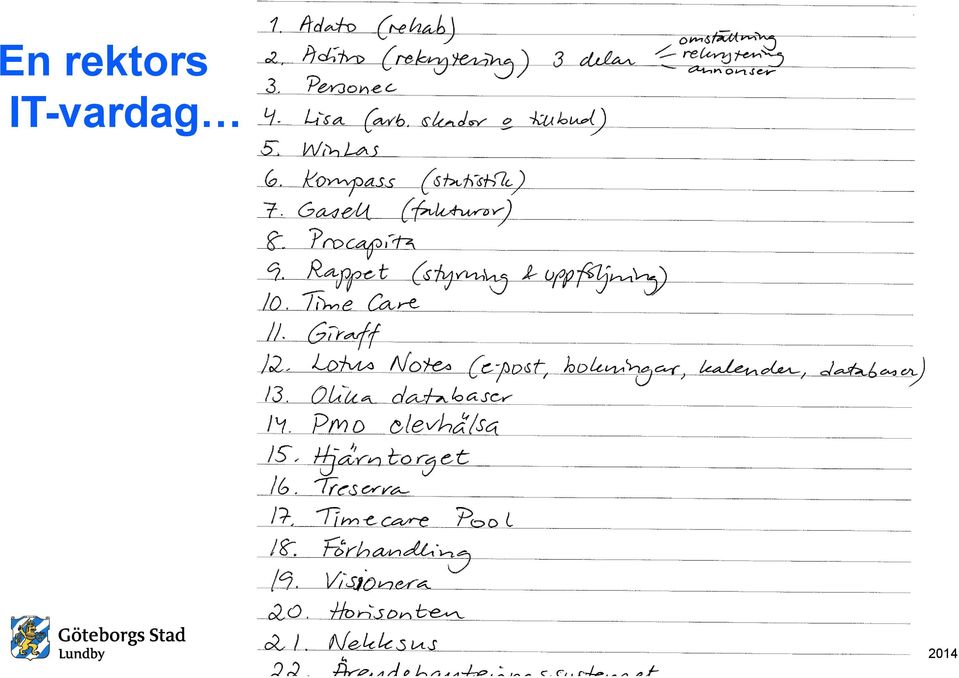 En rektors
IT-vardag…
1. Adato (rehab)
2. Aditro (rekrytering) 3 delar
omställning
rekrytering
annonser
3. Personec
4. Lisa (arb. skador o tillbud)
5. WinLas
6. Kompass (statistik)
7. Gasell (fakturor)
8. Procapita
9. Rappet (styrning & uppföljning)
10. Time Care
11. Giraff
12. Lotus Notes (e-post, bokningar, kalender, databaser)
13. Olika databaser
14. PMO elevhälsa
15. Hjärntorget
16. Treserva
17. Timecare Pool
18. Förhandling
19. Visionera
20. Horisonten
21. Nekksus
22. Ärendehanteringssystemet
Göteborgs Stad
Lundby
2014